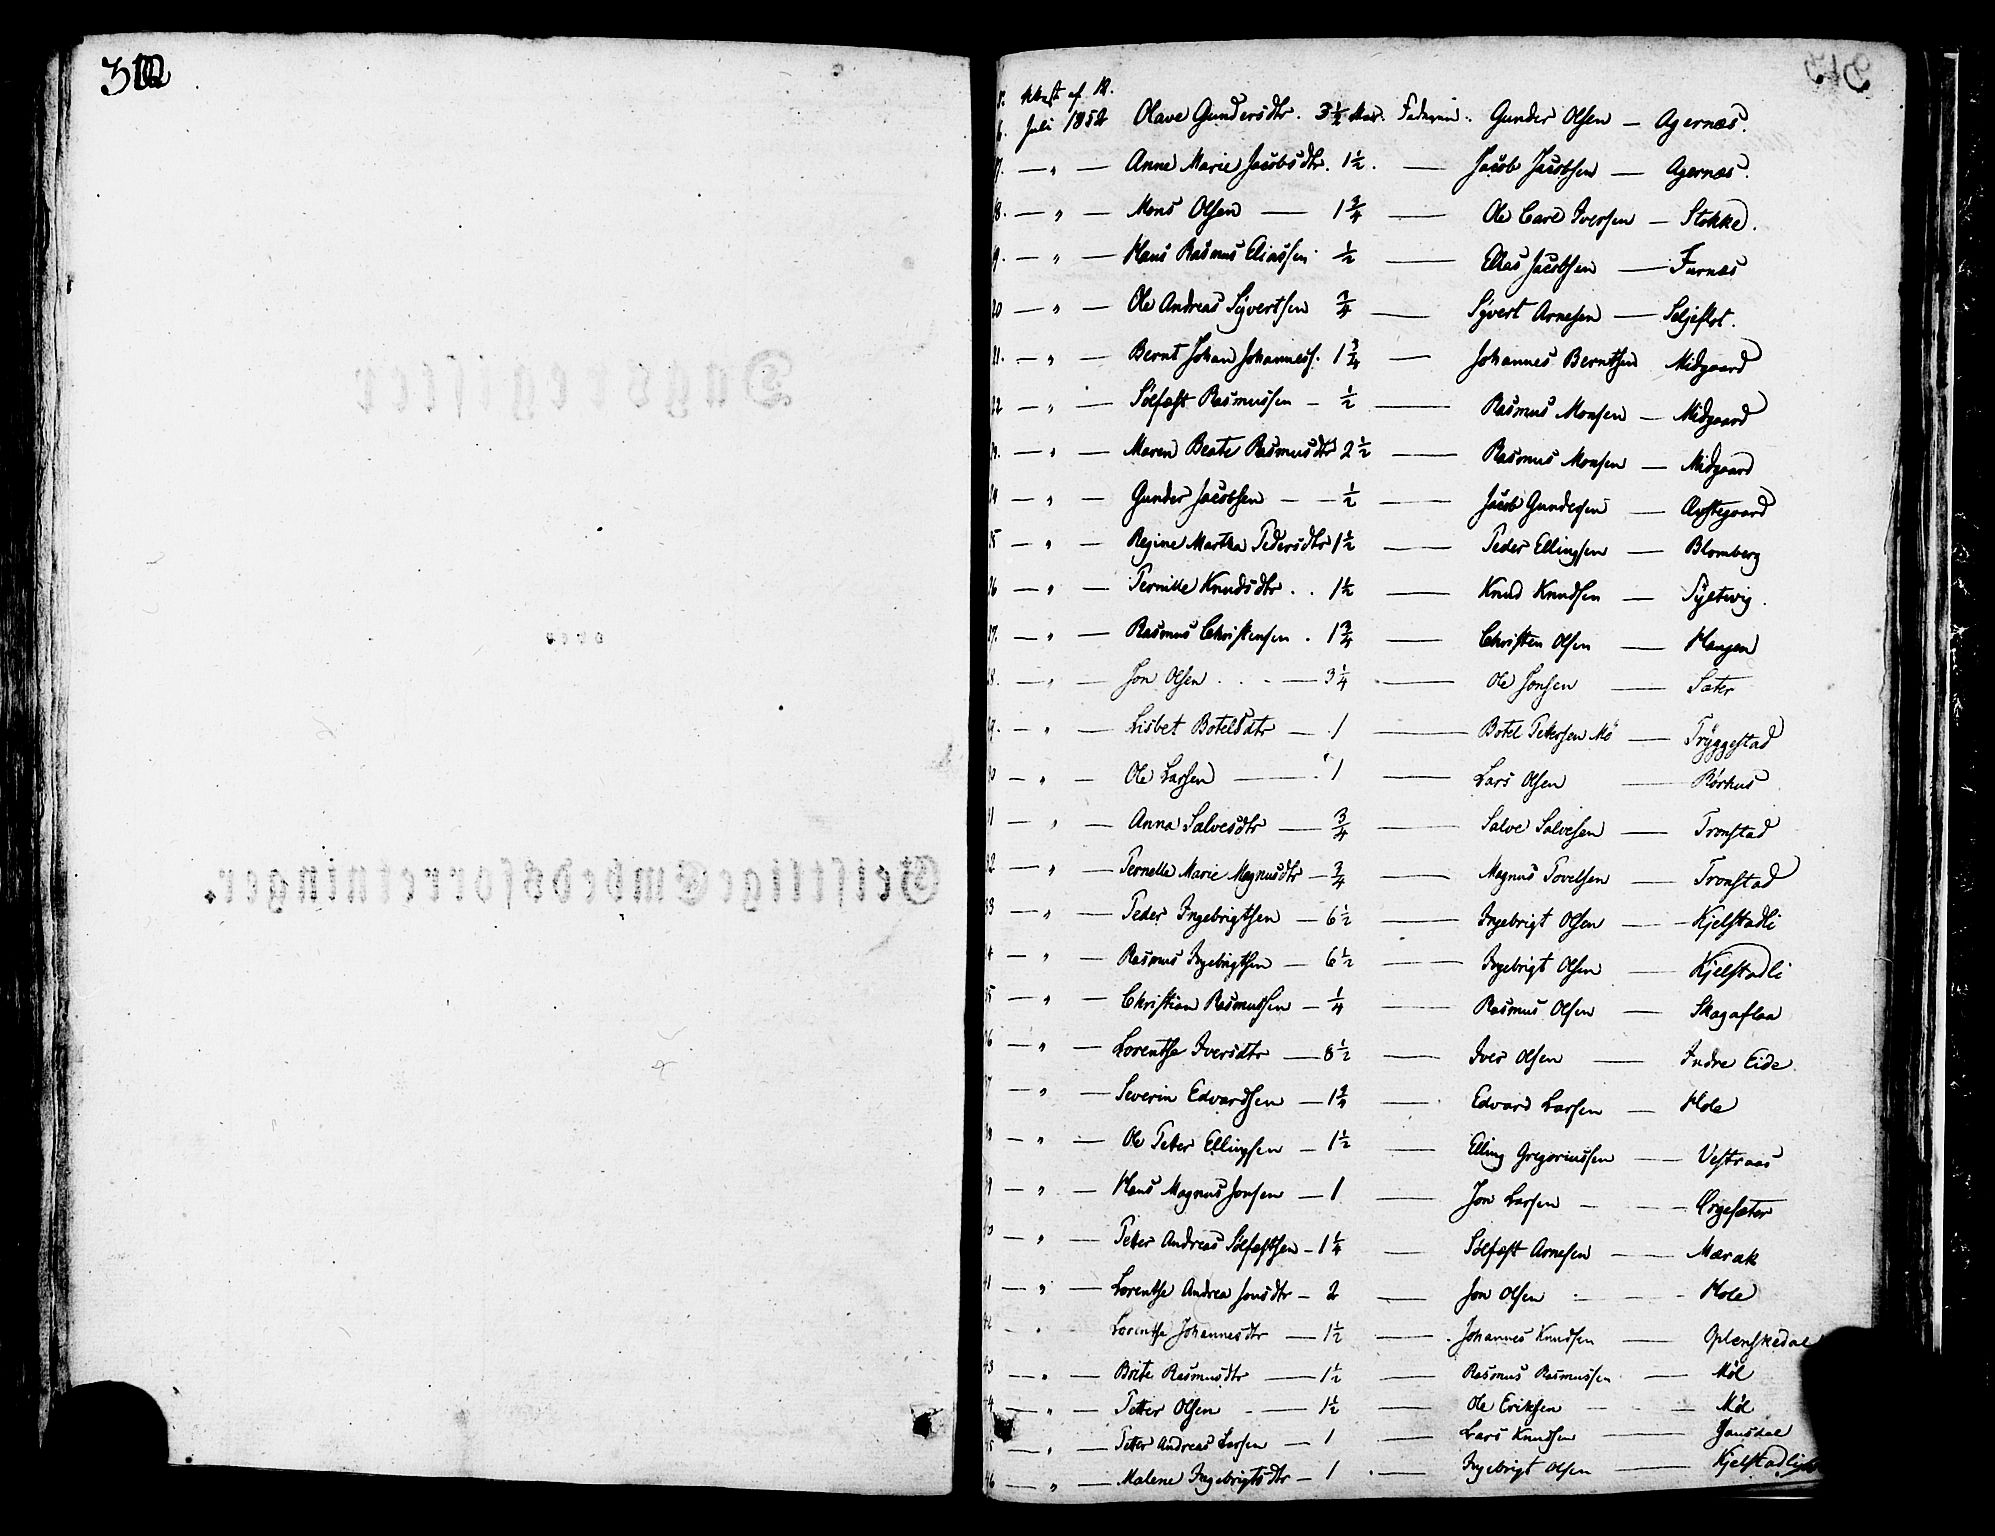 312
af 12.
6. Juli 1852 Olave Gundersdtr. 3 1/2 Gunder Olsen — Agernæs.
7. — " — Anne Marie Jacobsdtr. 1 1/2. — Jacob Jacobsen — Agernæs.
8. — " — Mons Olsen — 1 3/4 — Ole Carl Iversen — Stokke.
9. — " — Hans Rasmus Eliassen. 1/2 — Elias Jacobsen — Furnæs
20 — " — Ole Andreas Syvertsen 3/4 — Syvert Arnesen — Seljeflot.
21. — " — Bernt Johan Johanness. 1 3/4 — Johannes Berntsen Midgaard
22 — " — Sølfæst Rasmussen — 1/2 — Rasmus Monsen — Midgaard
— " — Maren Beate Rasmusdtr 2 1/2 — Rasmus Monsen — Midgaard
24 — " — Gunder Jacobsen — 1/2 — Jacob Gundersen — Øystegaard
25 — " — Regine Martha Pedersdtr 1 1/2 — Peder Ellingsen — Blomberg
26 — " — Pernille Knudsdtr . . 1 1/2 — Knud Knudsen — Syltevig.
27. — " — Rasmus Christensen . 1 3/4 — Christen Olsen — Haugen
28. — " — Jon Olsen . . . — 3 1/4 — Ole Jonsen — Sæter
29. — " — Lisbet Botelsdtr — 1 — Botel Petersen Mö — Tryggestad
30 — " — Ole Larsen — 1 — Lars Olsen — Rørhus
31 — " — Anna Salvesdtr — 3/4 — Salve Salvesen — Tronstad
32 — " — Pernelle Marie Magnusdtr — 3/4 — Magnus Povelsen — Tronstad
33 — " — Peder Ingebrigtsen — 6 1/2 — Ingebrigt Olsen — Kjelstadli
4 — " — Rasmus Ingebrigtsen — 6 1/2 — Ingebrigt Olsen — Kjelstadli
35 — " — Christian Rasmussen — 1/4 — Rasmus Olsen — Skagaflaa
36 — " — Lorentse Iversdtr — 8 1/2 — Iver Olsen — Indre Eide.
37 — " — Severin Edvardsen — 1 3/4 — Edvard Larsen — Hole
38 — " — Ole Peter Ellingsen — 1 1/2 — Elling Gregoriussen — Vestraas
39 — " — Hans Magnus Jonsen — 1 — Jon Larsen — Ørgesæter
40 — " — Petter Andreas Sølfæstsen — 1 1/4 — Sølfæst Arnesen — Marak
41 — " — Lorentse Andrea Jonsdtr — 2 — Jon Olsen — Hole
42 — " Lorentse Johannesdtr — 1 1/2 — Johannes Knudsen — Oplenskedal
43 — " — Brite Rasmusdtr — 1 1/2 — Rasmus Rasmussen — Møl
44 — " — Petter Olsen — 1 1/2 — Ole Eriksen — Møl
45 — " — Petter Andreas Larsen — 1 — Lars Knudsen —
46 — " — Malene Ingebrigtsdtr — 1 — Ingebrigt Olsen — Kjelstadli